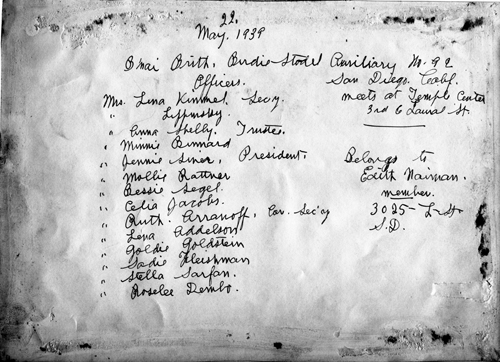 22.
May. 1939
Bnai Brith, Birdie Stodel Auxiliary No. 92
Officers. San Diego, Calif.
Mrs. Lena Kimmel, Secy. meets at Temple Center
" Lippinsky 3rd & Laurel St.
" Anna Shelly. Trustee.
" Minnie Binnard
" Jennie Siner, President. Belongs to
" Mollie Rattner Edith Naiman.
" Bessie Segel. member.
" Celia Jacobs. 3025 L St
" Ruth. Arranoff, Cor. Sec'cy S.D.
" Lena Addelson
" Goldie Goldstein
" Sadie Fleishman
" Stella Sarfan.
" Roselee Dembo.